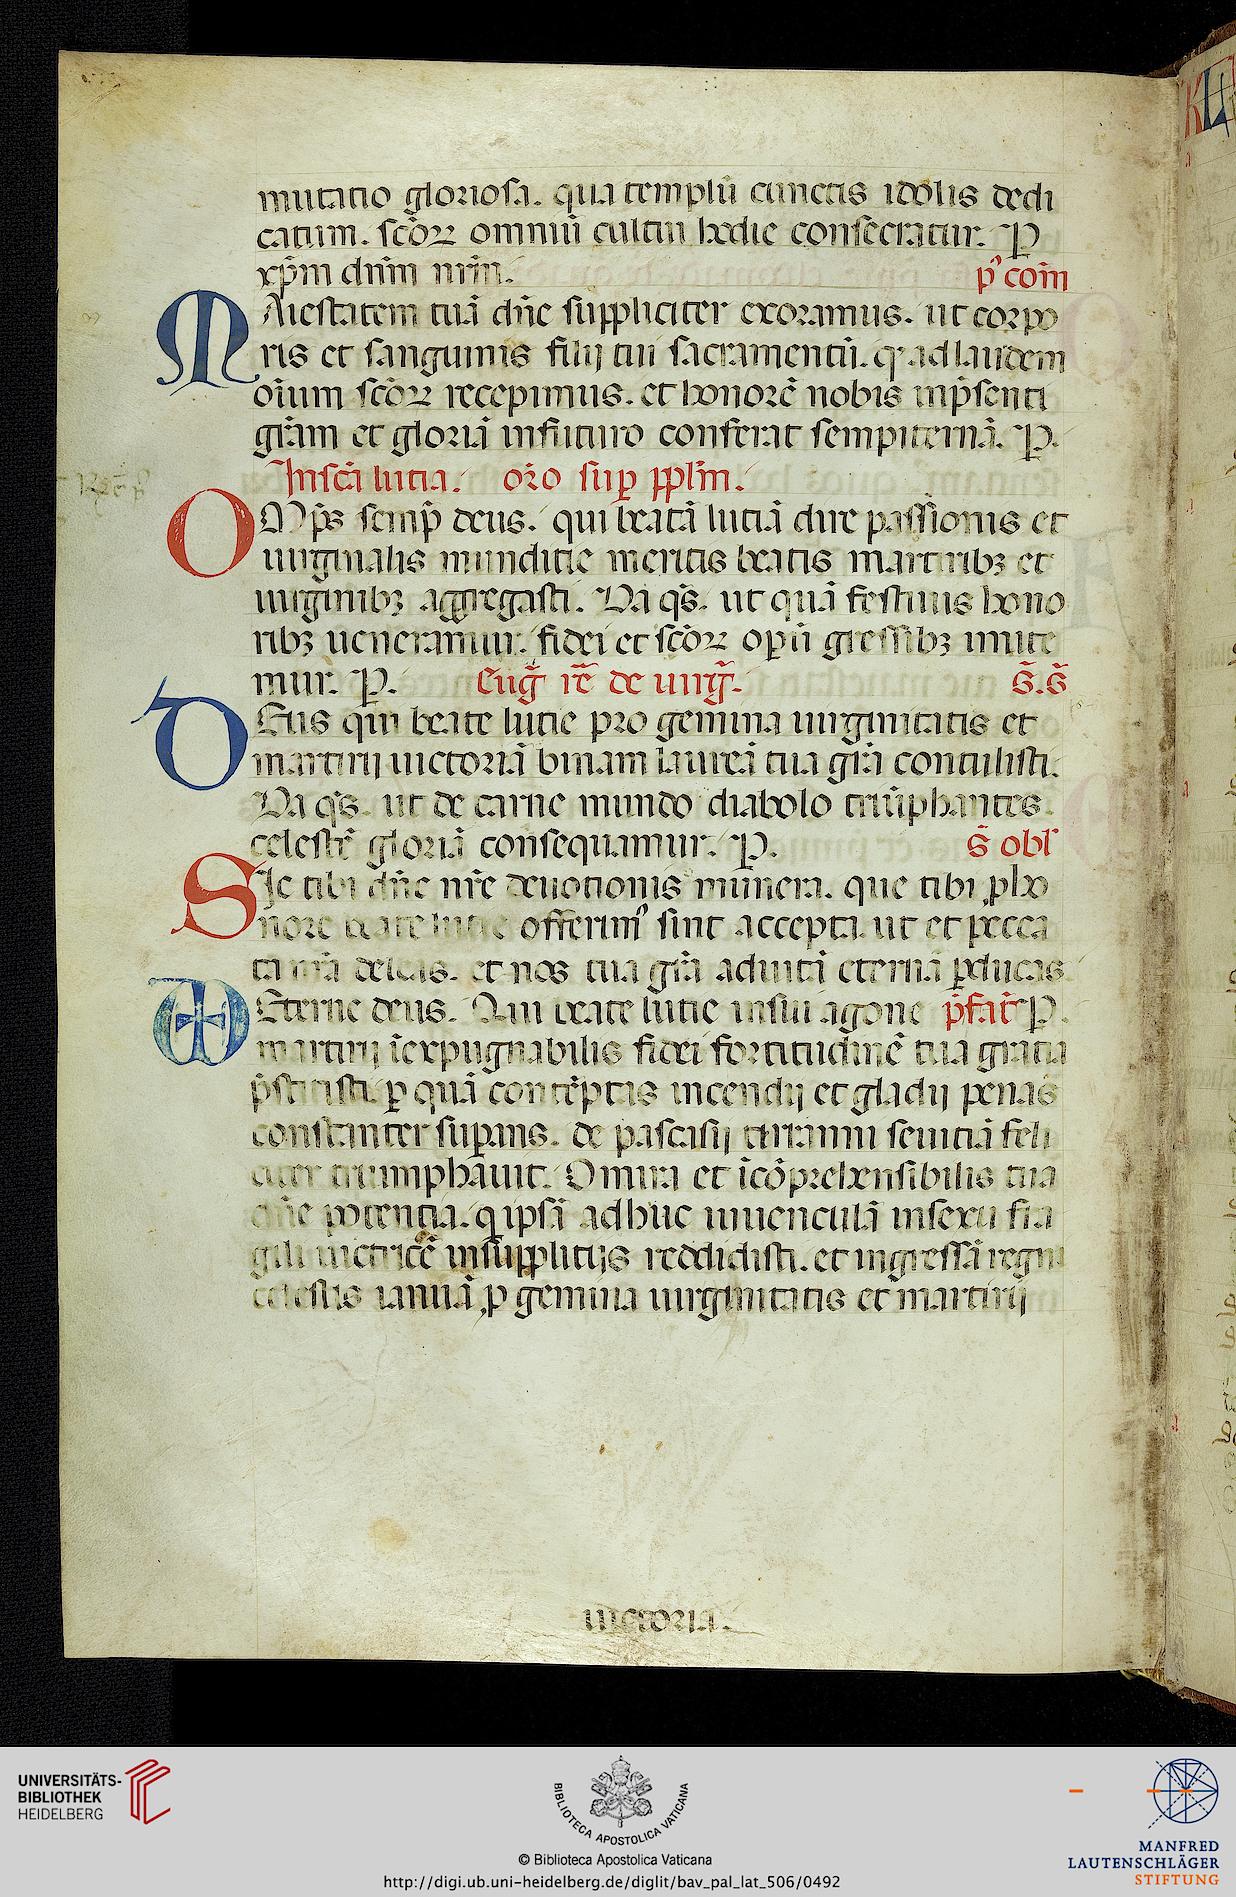 mutatio gloriosa. qua templū cunctis idolis dedi
catum. scōꝝ omniū cultui hodie consecratur. P
xp̄m dn̄m nr̄m.
p' com̄
Maiestatem tuā dn̄e suppliciter exoramus. ut corpo
ris et sanguinis filij tui sacramentū. qᵈ ad laudem
oīum scōꝝ recepimus. et honorē nobis inp̄senti
grām et gloriā infuturo conferat sempiternā. P.
In scā lucia. orō sup ppl̄m.
OMp̄s semp̄ deus. qui beatā luciā dire passionis et
uirginalis munditie meritis beatis martiribꝫ et
uirginibꝫ aggregasti. Da qs̄. ut quā festiuis hono
ribꝫ ueneramur. fidei et scōꝝ opū gressibꝫ imite
mur. P. Eug̃ rē de uirg̃.
s̄.s̄
DEus qui beate lucie pro gemina uirginitatis et
martirij uictoriā binam laureā tua grā contulisti.
Da qs̄. ut de carne mundo diabolo triūphantes
celestē gloriā consequamur. P.
s̄ obl'
SIc tibi dn̄e nr̄e deuotionis munera. que tibi ꝓ ho
nore beate lucie offerim' sint accepta. ut et pecca
ta nr̄a deleas. et nos tua grā adiutā eternā ꝑducas
Eterne deus. Qui beate lucie insui agone p̄fat̄ P.
martirij īexpugnabilis fidei fortitudinē tua gratia
p̄stitisti. ꝑ quā contēptis incendij et gladij penas
constanter supans. de pascasij tiranni seuitiā feli
citer triumphauit. O mira et īcōprehensibilis tua
dn̄e potentia. q ipsā adhuc iuuenculā insexu fra
gili uictricē insupplitijs reddidisti. et ingressā regni
celestis ianuā ꝓ gemina uirginitatis et martirij
uictoria.
UNIVERSITÄTS-
BIBLIOTHEK
HEIDELBERG
BIBLIOTECA APOSTOLICA VATICANA
© Biblioteca Apostolica Vaticana
http://digi.ub.uni-heidelberg.de/diglit/bav_pal_lat_506/0492
MANFRED
LAUTENSCHLÄGER
STIFTUNG